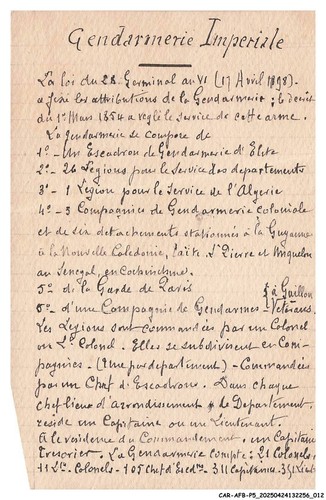 Gendarmerie Imperiale
La loi du 28 Germinal an VI (17 Avril 1898)
a fixé les attributions de la Gendarmerie; le décret
du 1er Mars 1854 a reglé le service de cette arme.
La gendarmerie se compose de
1o - Un Escadron de Gendarmerie d'Elite
2o - 26 Legions pour le service des departements
3o - 1 Legion pour le service de l'Algerie
4o - 3 Compagnies de Gendarmerie coloniale
et de six detachements stationnés à la Guyane
à la Nouvelle Caledonie, Taïti, St Pierre et Miquelon
au Senegal, en Cochinchine.
5o de la Garde de Paris
6o - d'une Compagnie de Gendarmes Vétérans. à Guillon
Les Légions sont commandées par un Colonel
ou Lt Colonel. Elles se subdivisent en Com-
pagnies - (Une par departement) - Commandées
par un Chef d'Escadrons. Dans chaque
chef lieu d'arrondissement de Departement,
reside un Capitaine ou un Lieutenant.
A la residence du Commandement, un Capitaine
Tresorier. La Gendarmerie compte: 21 Colonels
11 Lt-Colonels - 105 chefs d'Escdns - 311 Capitaines